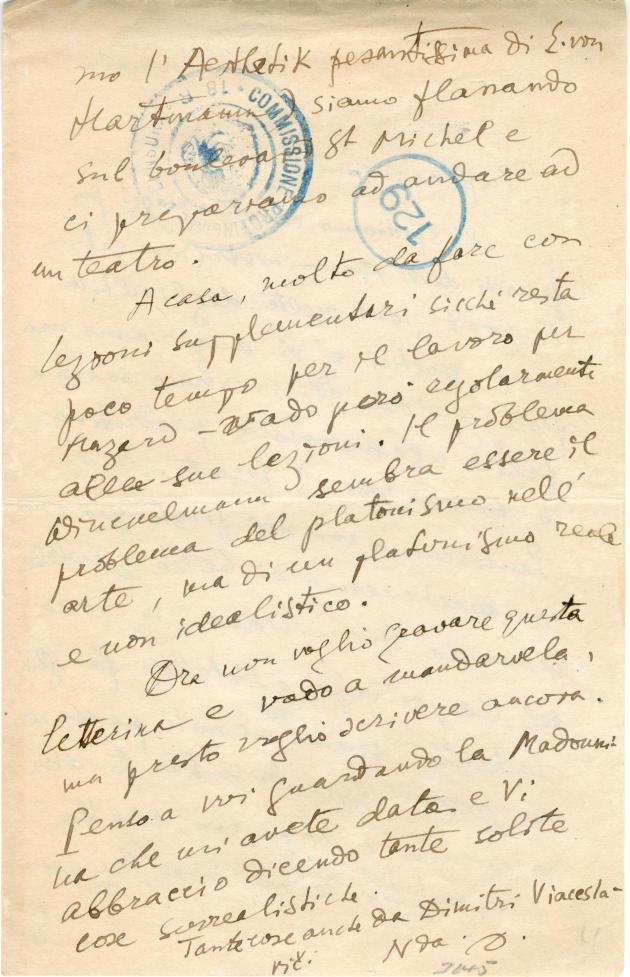 mo l'Aesthetik pesantissima di E. von
Hartmann) siamo flanando
sul boulevard St Michel e
ci prepariamo ad andare ad
un teatro.
A casa, molto da fare con
lezioni supplementari sicchè resta
poco tempo per il lavoro per
Hazard - vado però regolarmente
alle sue lezioni. Il problema
Winckelmann sembra essere il
problema del platonismo nell'
arte, ma di un platonismo reale
e non idealistico.
Ora non voglio gravare questa
letterina e vado a mandarvela,
ma presto voglio scrivere ancora.
Penso a voi guardando la Madonni-
na che mi avete data e Vi
abbraccio dicendo tante solite
cose surrealistiche.
Tante cose anche da Dimitri Viacesla-
vič.
COMMISSIONE PROVIN
129